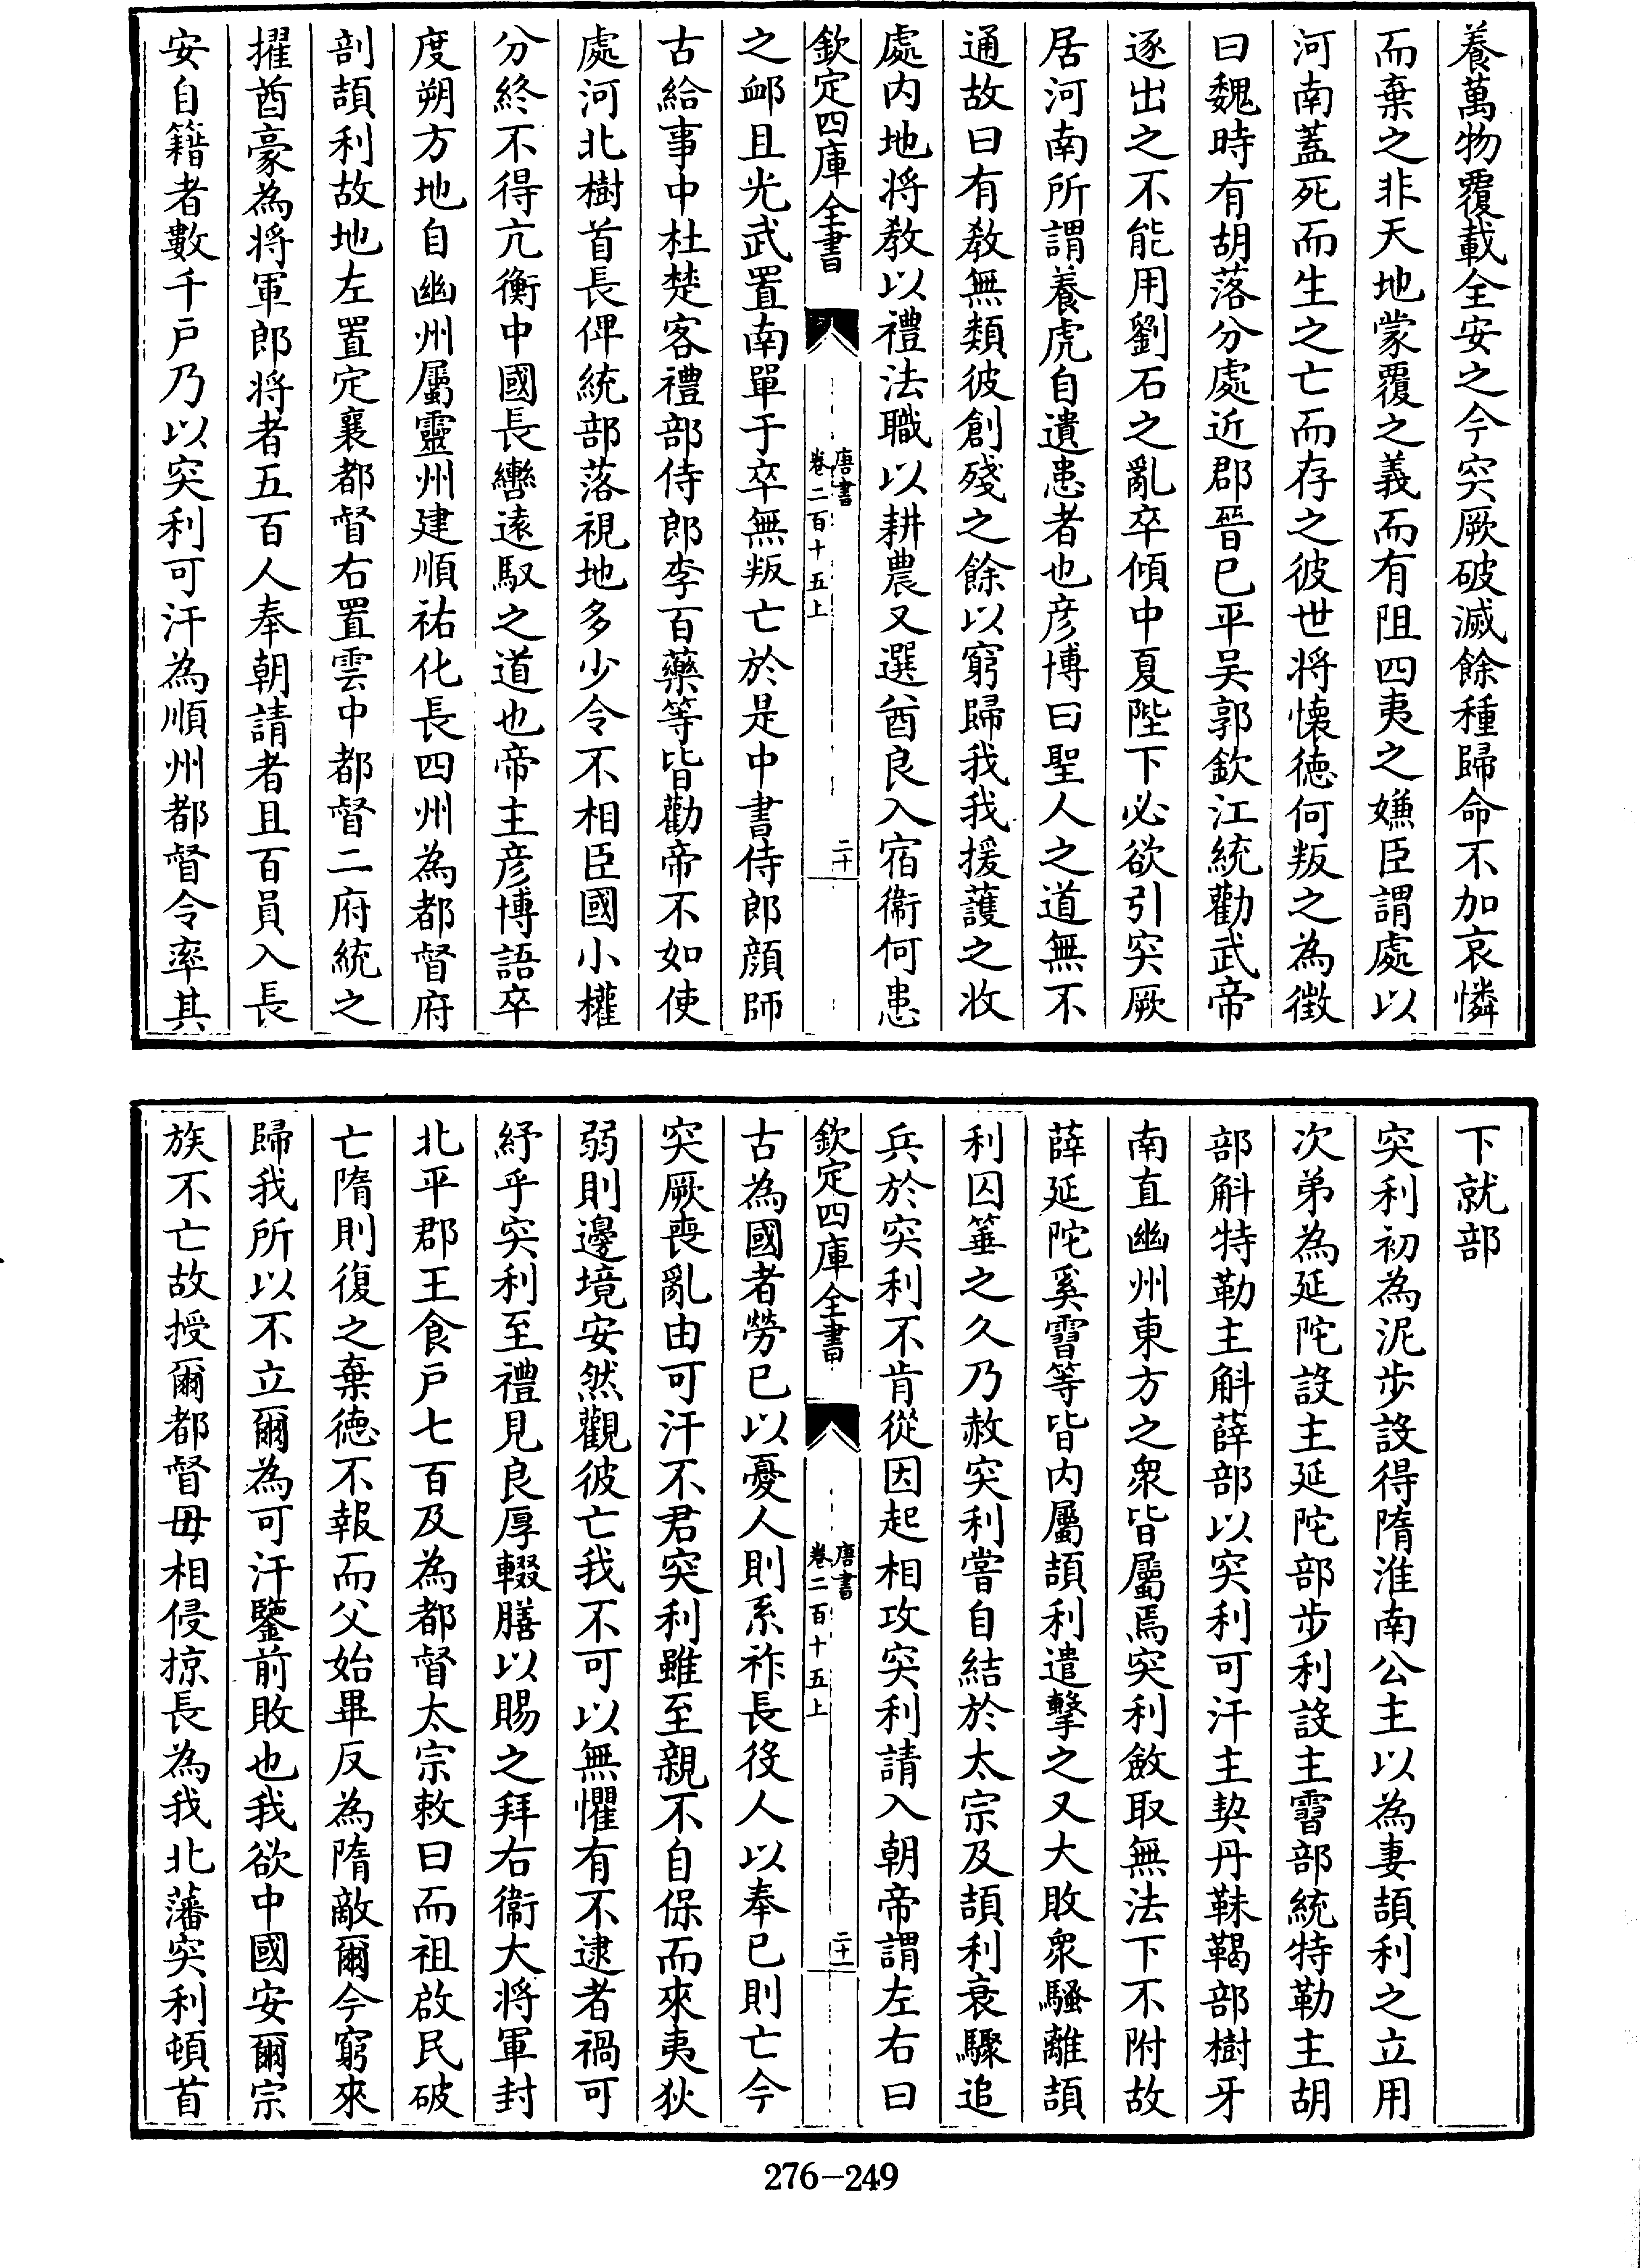 養萬物覆載全安之今突厥破滅餘種歸命不加哀憐
而棄之非天地蒙覆之義而有阻四夷之嫌臣謂處以
河南蓋死而生之亡而存之彼世將懷德何叛之為徵
曰魏時有胡落分處近郡晉已平吳郭欽江統勸武帝
逐出之不能用劉石之亂卒傾中夏陛下必欲引突厥
居河南所謂養虎自遺患者也彥博曰聖人之道無不
通故曰有教無類彼創殘之餘以窮歸我我援護之收
處内地將教以禮法職以耕農又選酋良入宿衞何患
欽定四庫全書
唐書
卷二百十五上
二十
之卹且光武置南單于卒無叛亡於是中書侍郎顔師
古給事中杜楚客禮部侍郎李百藥等皆勸帝不如使
處河北樹首長俾統部落視地多少令不相臣國小權
分終不得亢衡中國長轡遠馭之道也帝主彥博語卒
度朔方地自幽州屬靈州建順祐化長四州為都督府
剖頡利故地左置定襄都督右置雲中都督二府統之
擢酋豪為將軍郎將者五百人奉朝請者且百員入長
安自籍者數千户乃以突利可汗為順州都督令率其
下就部
突利初為泥步設得隋淮南公主以為妻頡利之立用
次弟為延陀設主延陀部步利設主霫部統特勒主胡
部斛特勒主斛薛部以突利可汗主契丹靺鞨部樹牙
南直幽州東方之衆皆屬焉突利斂取無法下不附故
薛延陀奚霫等皆内屬頡利遣擊之又大敗衆騷離頡
利囚箠之久乃赦突利嘗自結於太宗及頡利衰驟追
兵於突利不肯從因起相攻突利請入朝帝謂左右曰
欽定四庫全書
唐書
卷二百十五上
二十一
古為國者勞已以憂人則系祚長役人以奉已則亡今
突厥喪亂由可汗不君突利雖至親不自保而來夷狄
弱則邊境安然觀彼亡我不可以無懼有不逮者禍可
紓乎突利至禮見良厚輟膳以賜之拜右衞大將軍封
北平郡王食户七百及為都督太宗敕曰而祖啟民破
亡隋則復之棄德不報而父始畢反為隋敵爾今窮來
歸我所以不立爾為可汗鑒前敗也我欲中國安爾宗
族不亡故授爾都督毋相侵掠長為我北藩突利頓首
276-249